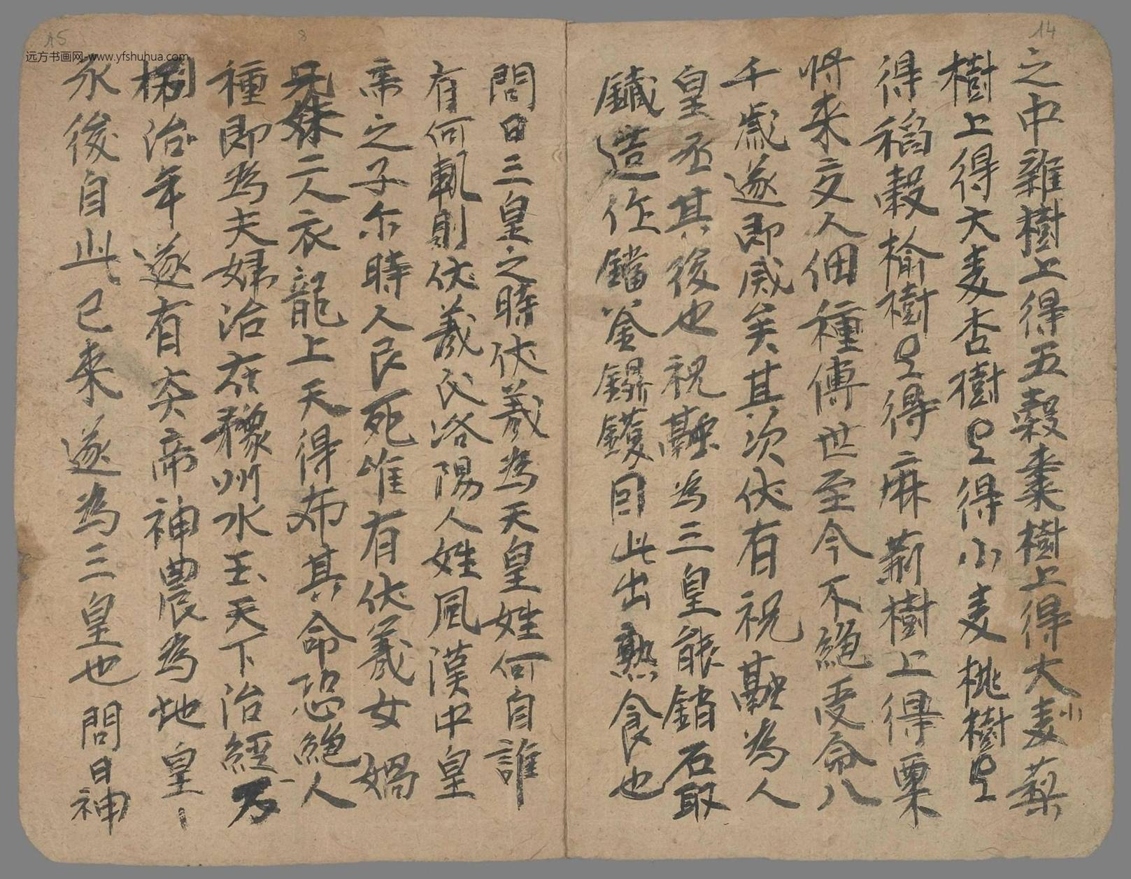 之中雜樹上得五穀棗樹上得大麦小䔧
樹上得大麦杏樹上得小麦桃樹上
得稻穀榆樹上得麻荊樹上得粟
将来交人佃種傳世至今不絕受命八
千歲遂即咸矣其次伏有祝融為人
皇丞其後也祝融為三皇能銷石取
鐵造作鐺釜鍋鑊因此出熟食也
問曰三皇之時伏羲為天皇姓何自誰
有何軌則伏羲氏洛陽人姓風漢中皇
帝之子尓時人民死唯有伏羲女媧
兄妹二人衣龍上天得布其命恐絕人
種即為夫婦治在豫州水王天下治經万
治年遂有炎帝神農為地皇
永後自此已来遂為三皇也問曰神
15
3
14
远方书画网-www.yfshuhua.com